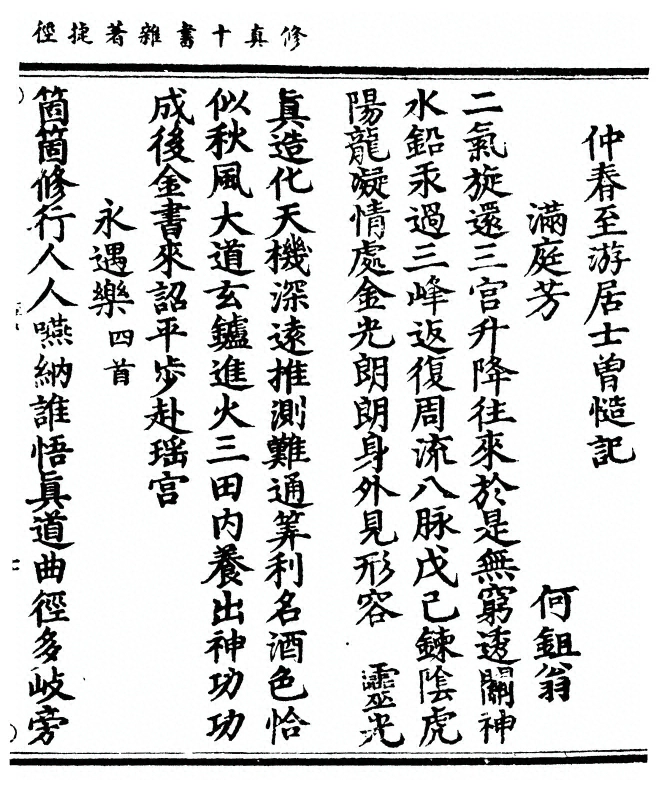 修真十書雜著捷徑
仲春至游居士曾慥記
滿庭芳　何鉏翁
二氣旋還三宮升降往來於是無窮透關神
水鉛汞過三峰返復周流八脉戊己鍊陰虎
陽龍凝情處金光朗朗身外見形容　靈光
眞造化天機深遠推測難通筭利名酒色恰
似秋風大道玄鑪進火三田内養出神功功
成後金書來詔平步赴瑶宮
永遇樂四首
箇箇修行人人嚥納誰悟眞道曲徑多岐旁